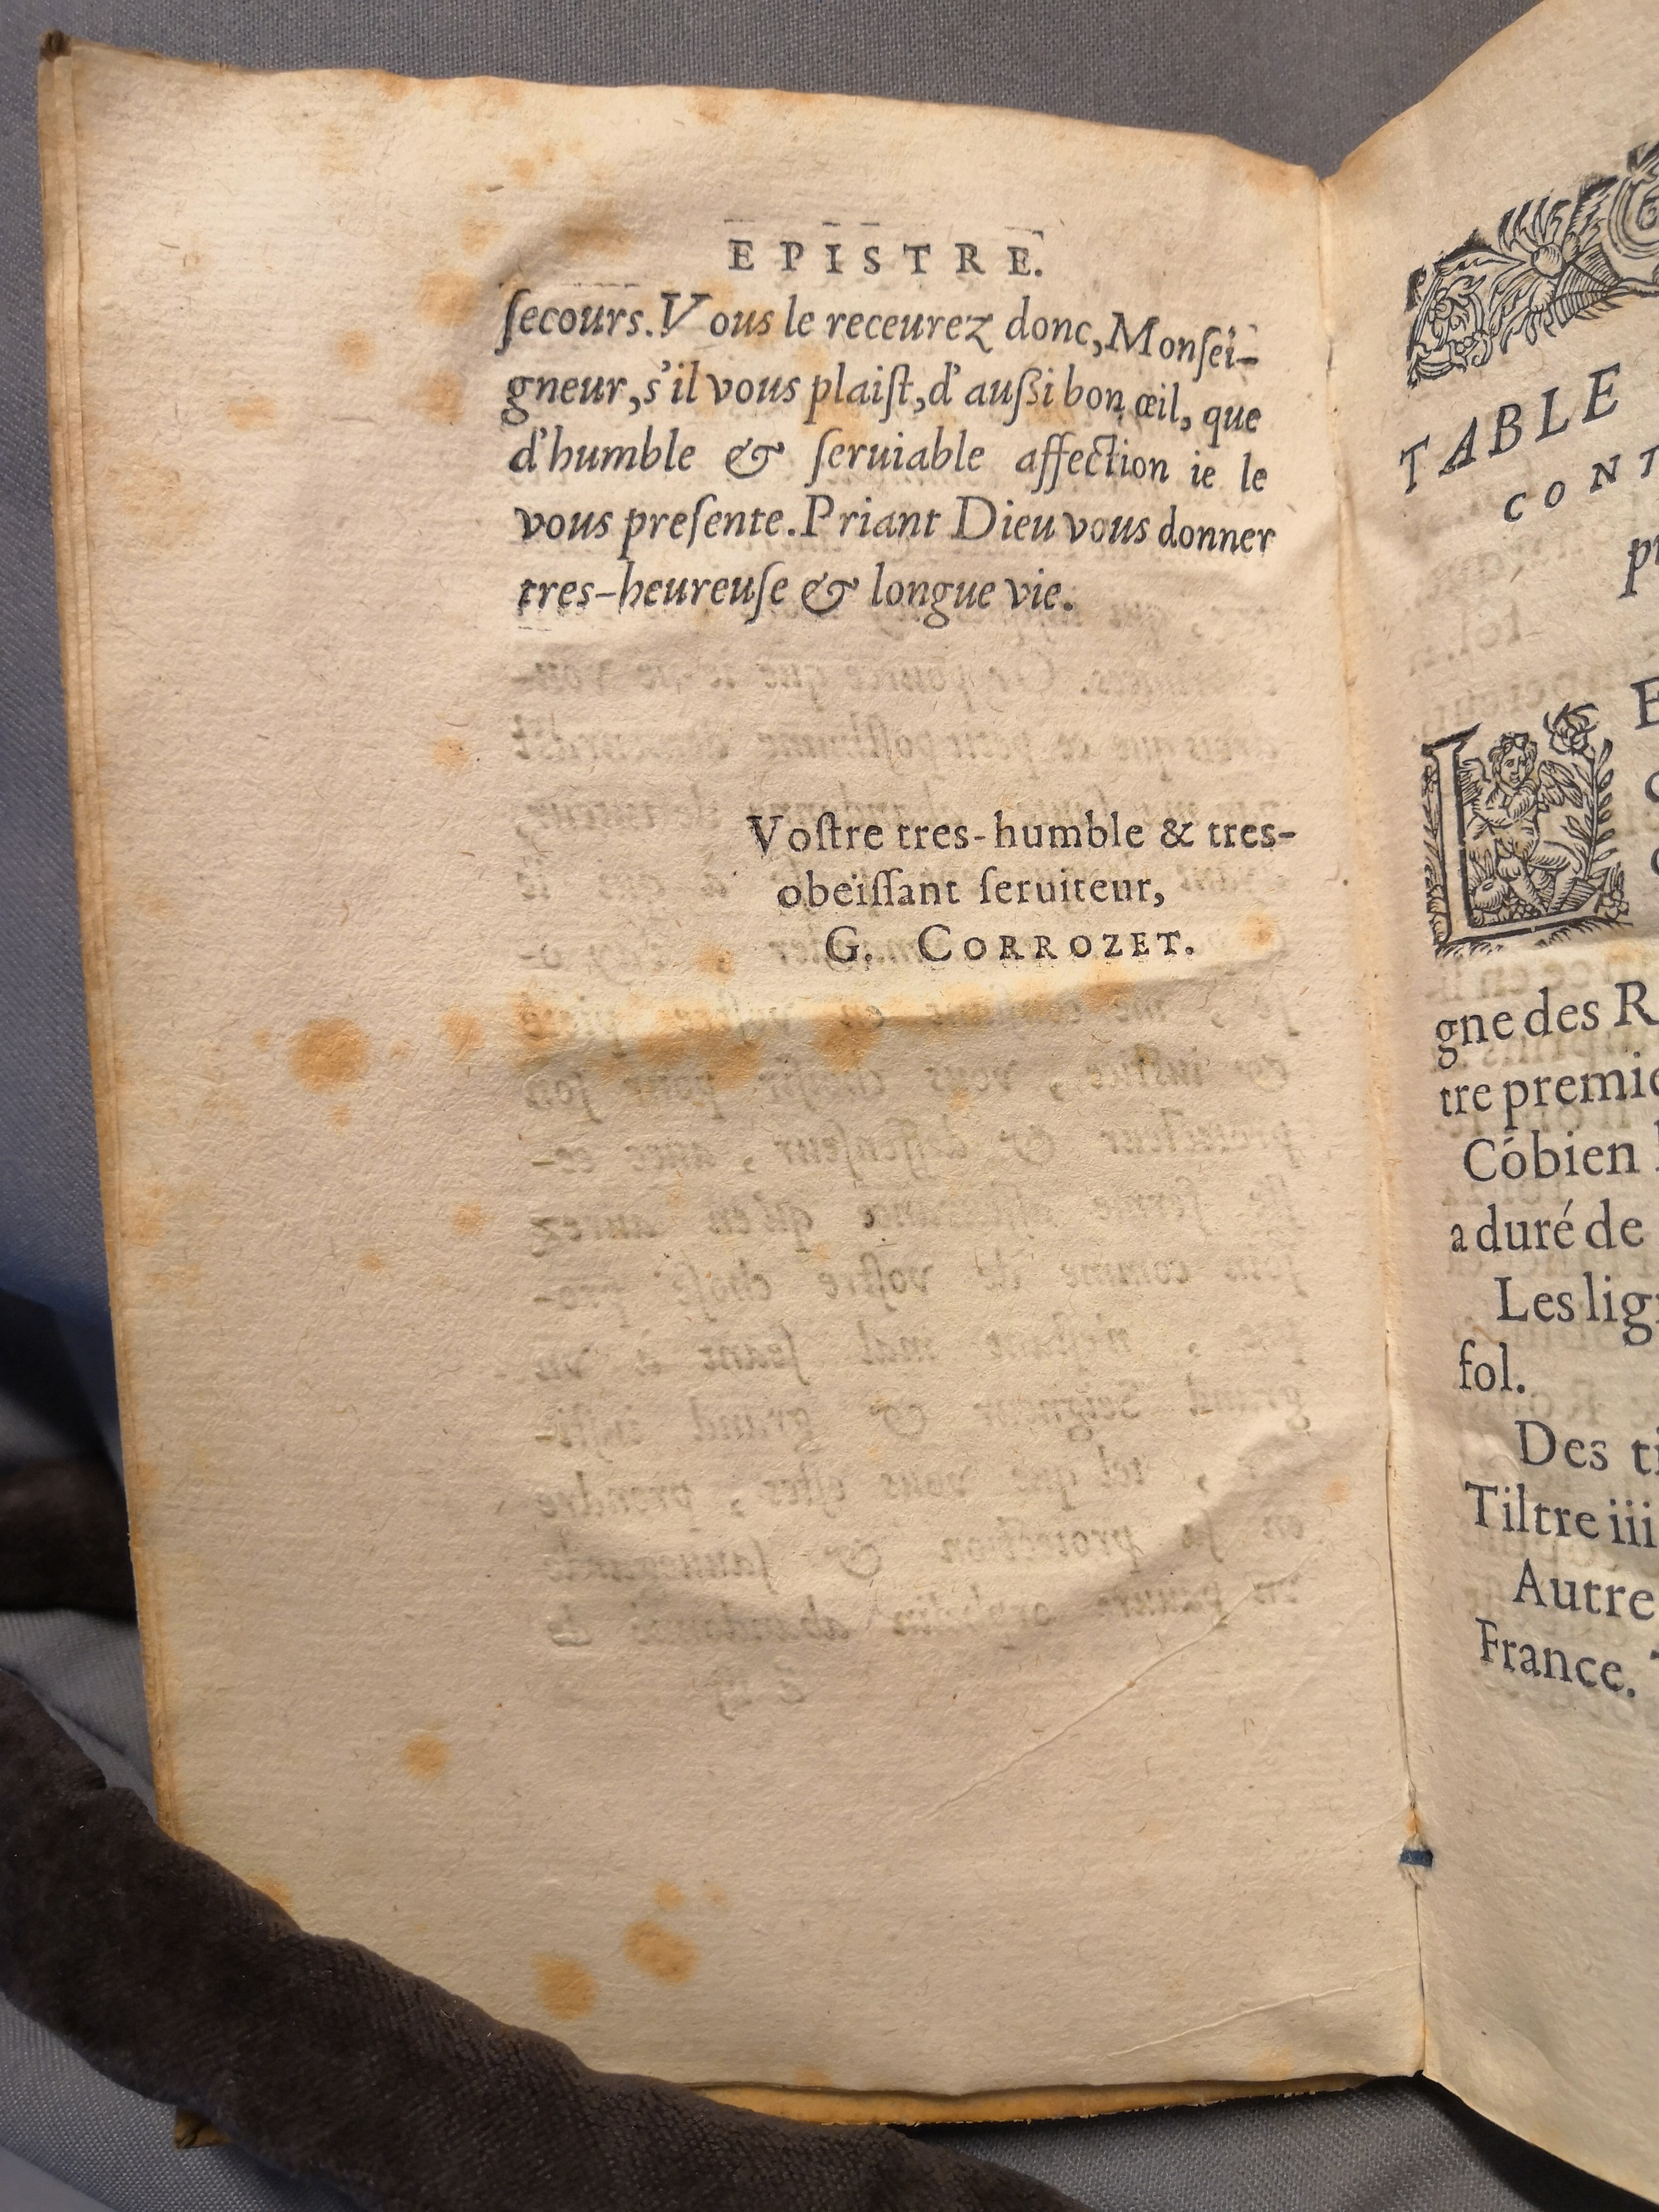 EPISTRE.
ſecours. Vous le receurez donc, Monſei-
gneur, s'il vous plaiſt, d'auſſi bon œil, que
d'humble & ſeruiable affection ie le
vous preſente. Priant Dieu vous donner
tres-heureuſe & longue vie.
Voſtre tres-humble & tres-
obeïſſant ſeruiteur,
G. CORROZET.
TABLE
CONT
gne des R
tre premie
Cõbien
a duré de
Les lig
fol.
Des ti
Tiltre iii
Autre
France.